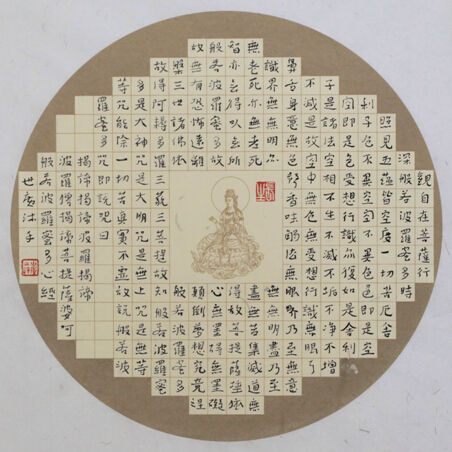 觀自在菩薩行
深般若波羅蜜多時
照見五蘊皆空度一切苦厄舍
利子色不異空空不異色色即是空
空即是色受想行識亦復如是舍利
子是諸法空相不生不滅不垢不淨不增
不減是故空中無色無受想行識無眼耳
鼻舌身意無色聲香味觸法無眼界乃至無意
識界無無明亦無無明盡乃至
無老死亦無老死盡無苦集滅道無
智亦無得以無所得故菩提薩埵依
般若波羅蜜多故心無罣礙無罣礙
故無有恐怖遠離顛倒夢想究竟涅
槃三世諸佛依般若波羅蜜多
故得阿耨多羅三藐三菩提故知般若波羅蜜
多是大神咒是大明咒是無上咒是無等
等咒能除一切苦真實不虛故說般若波
羅蜜多咒即說咒曰
揭諦揭諦波羅揭諦
波羅僧揭諦菩提薩婆呵
般若波羅蜜多心經
世沐手